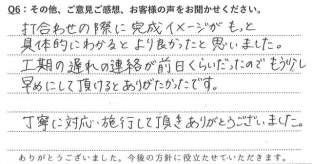 Q6：その他、ご意見ご感想、お客様の声をお聞かせください。
打合わせの際に完成イメージがもっと
具体的にわかるとより良かったと思いました。
工期の遅れの連絡が前日くらいだったのでもう少し
早めにして頂けるとありがたかったです。
丁寧に対応・施行して頂きありがとうございました。
ありがとうございました。今後の方針に役立たせていただきます。